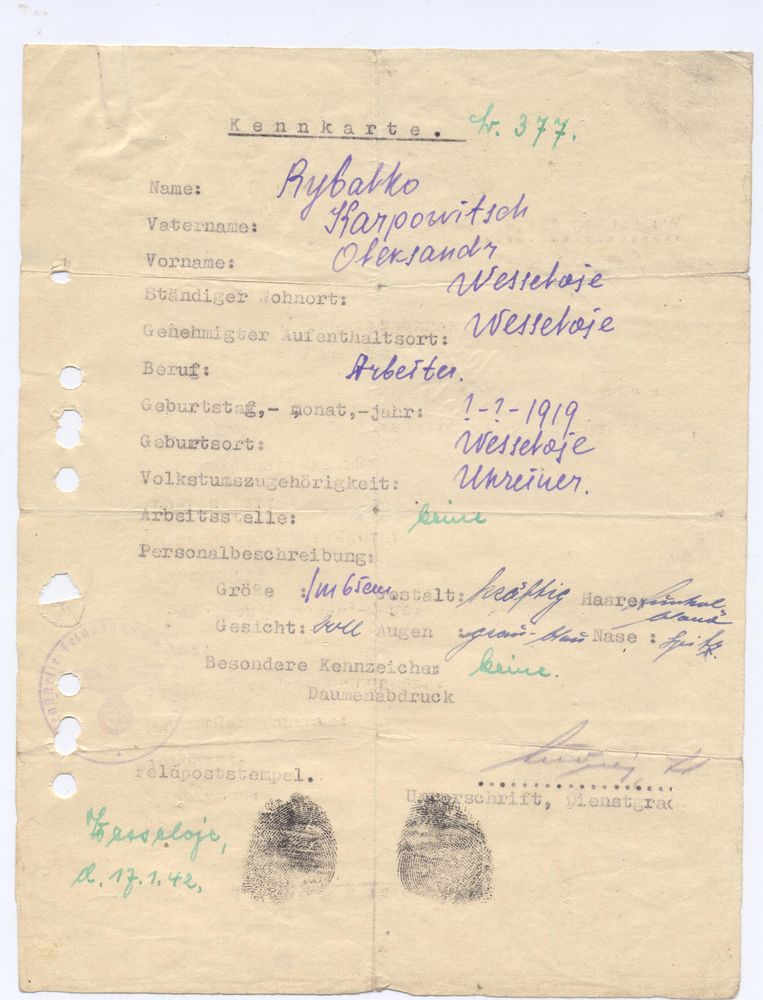 Kennkarte. Nr. 377.
Name: Rybalko
Vatername: Karpowitsch
Vorname: Oleksandr
Ständiger Wohnort: Wesseloje
Genehmigter Aufenthaltsort: Wesseloje
Beruf: Arbeiter.
Geburtstag,- monat,-jahr: ?-?-1919
Geburtsort: Wesseloje
Volkstumszugehörigkeit: Ukreiner.
Arbeitsstelle: keine
Personalbeschreibung:
Größe : 1m65cm Gestalt: kräftig Haare: dunkelblond
Gesicht: voll Augen : grau-blau Nase : spitz
Besondere Kennzeichen keine.
Daumenabdruck
Feldpoststempel.
Unterschrift, Dienstgrad
Wesseloje,
d. 17.1.42.